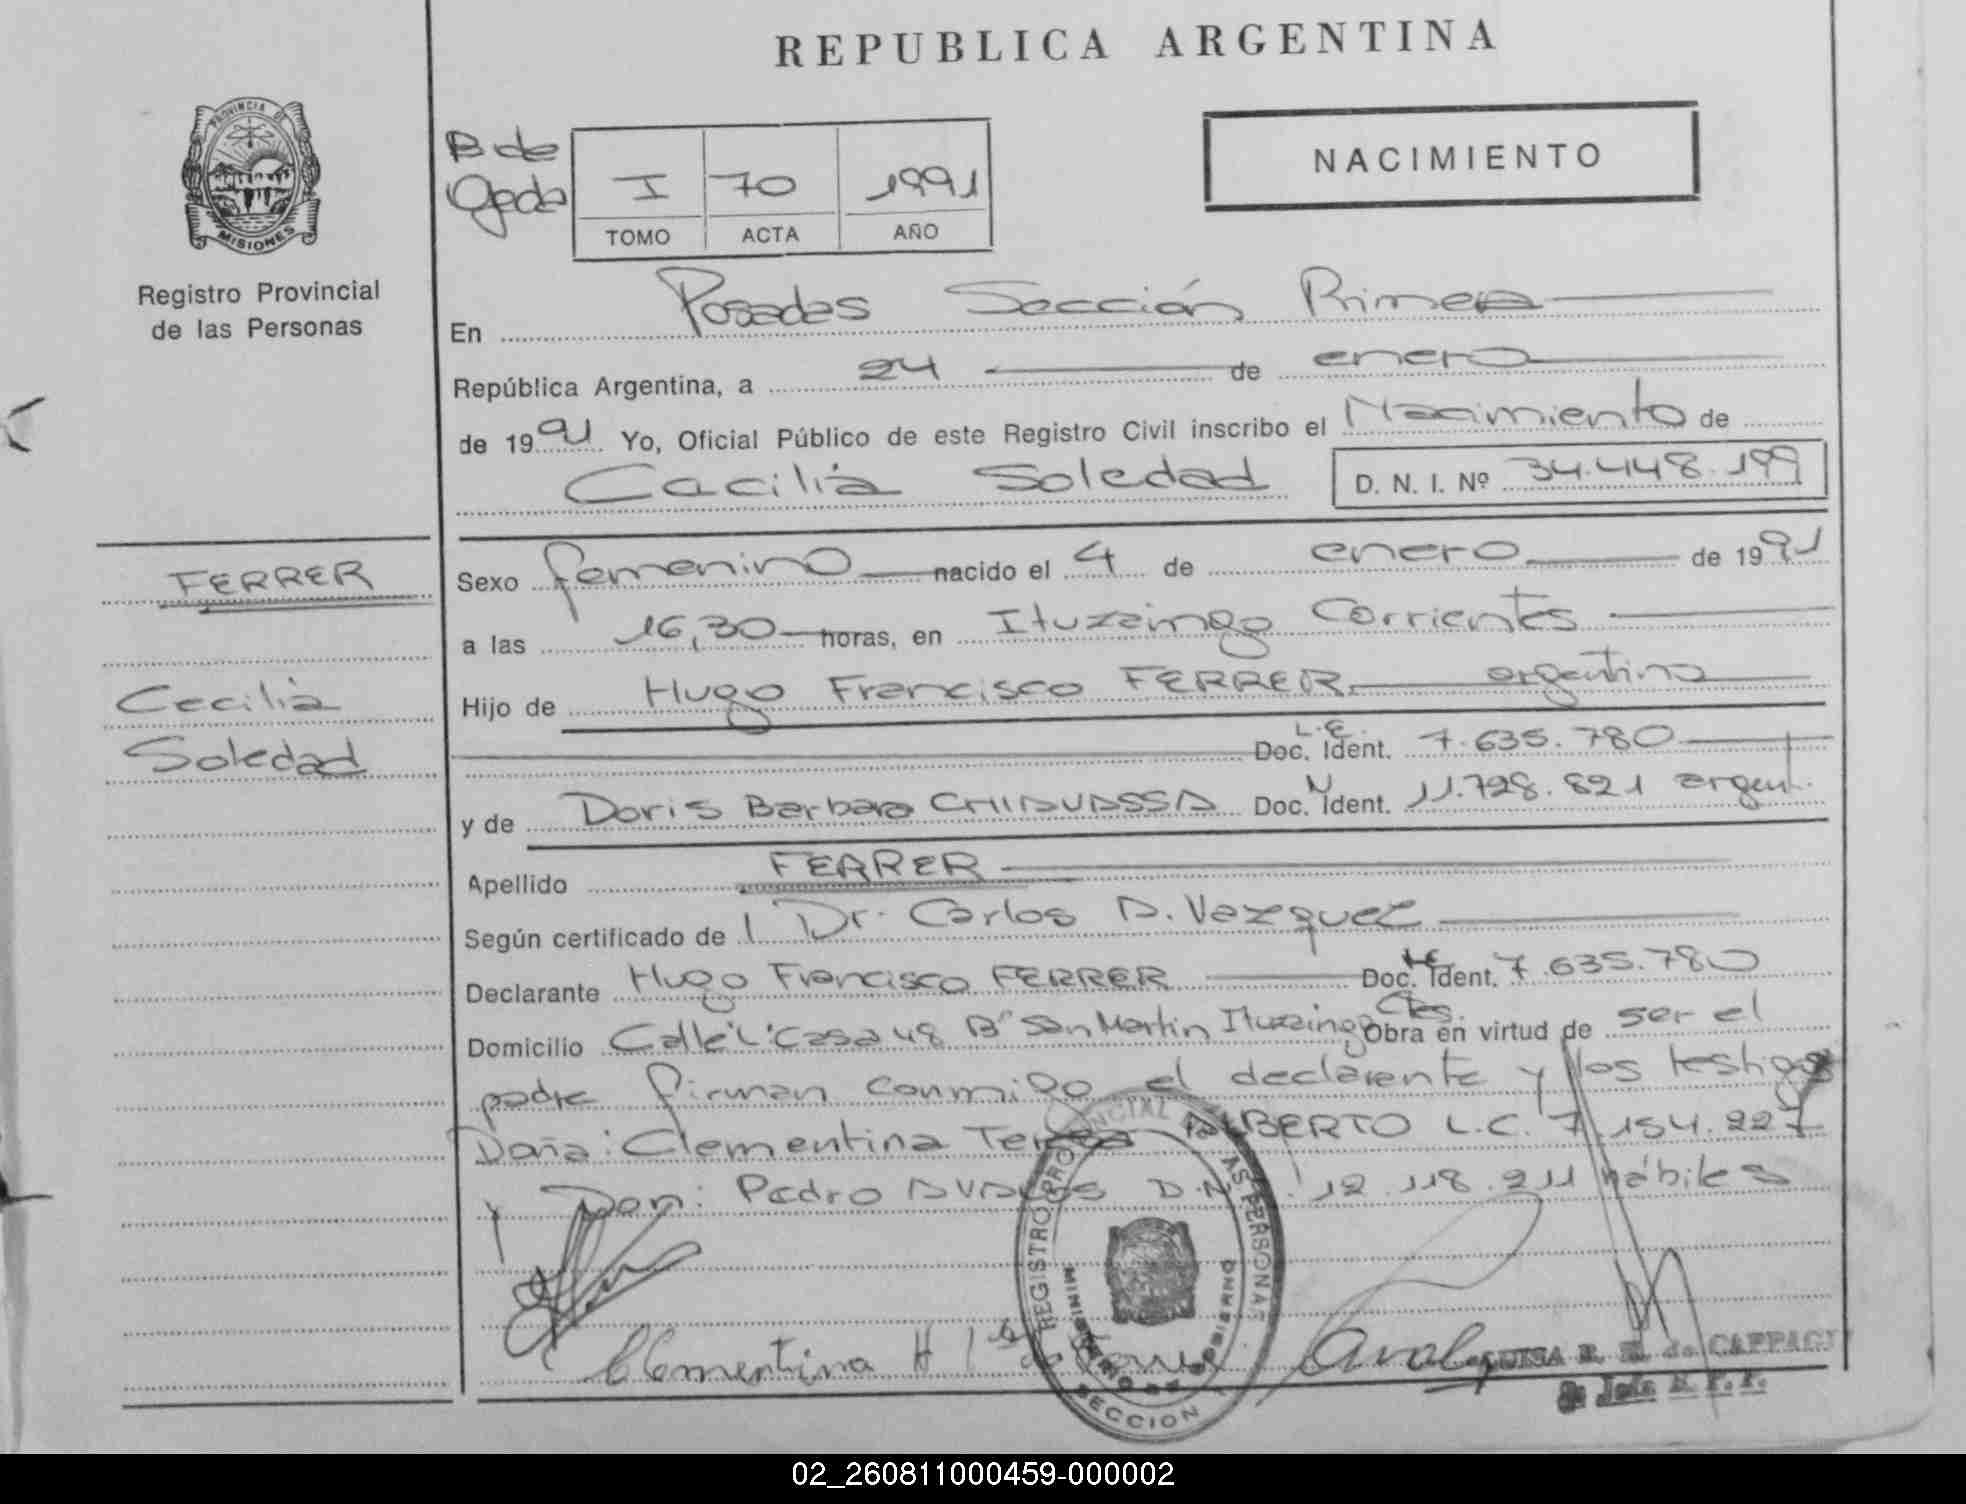 REPUBLICA ARGENTINA
PROVINCIA DE
MISIONES
Registro Provincial
de las Personas
B de
I 70 1991
TOMO ACTA AÑO
NACIMIENTO
En Posadas Sección Primera
República Argentina, a 24 de enero
de 1991 Yo, Oficial Público de este Registro Civil inscribo el Nacimiento de
Cecilia Soledad D. N. I. Nº 34.448.199
FERRER
Cecilia
Soledad
Sexo femenino nacido el 4 de enero de 1991
a las 16,30 horas, en Ituzaingo Corrientes
Hijo de Hugo Francisco FERRER argentino
L.E.
Doc. Ident. 7.635.780
y de Doris Barbara CHIAVASSA Doc. Ident. 11.728.821 argent.
Apellido FERRER
Según certificado de Dr. Carlos A. Vazquez
Declarante Hugo Francisco FERRER Doc. Ident. 7.635.780
Domicilio Calle "L" Casa 48 B° San Martin Ituzaingo Ctes. Obra en virtud de ser el
padre firman conmigo el declarente y los testigos
Doña: Clementina Teresa ALBERTO L.C. 7.154.227
y Don: Pedro AVALOS D.N. 12.118.211 hábiles
REGISTRO PROVINCIAL AS PERSONAS
MINISTERIO DE GOBIERNO
SECCION
Clementina H
LUISA R. de
2a Jefe R. P. P.
02_260811000459-000002